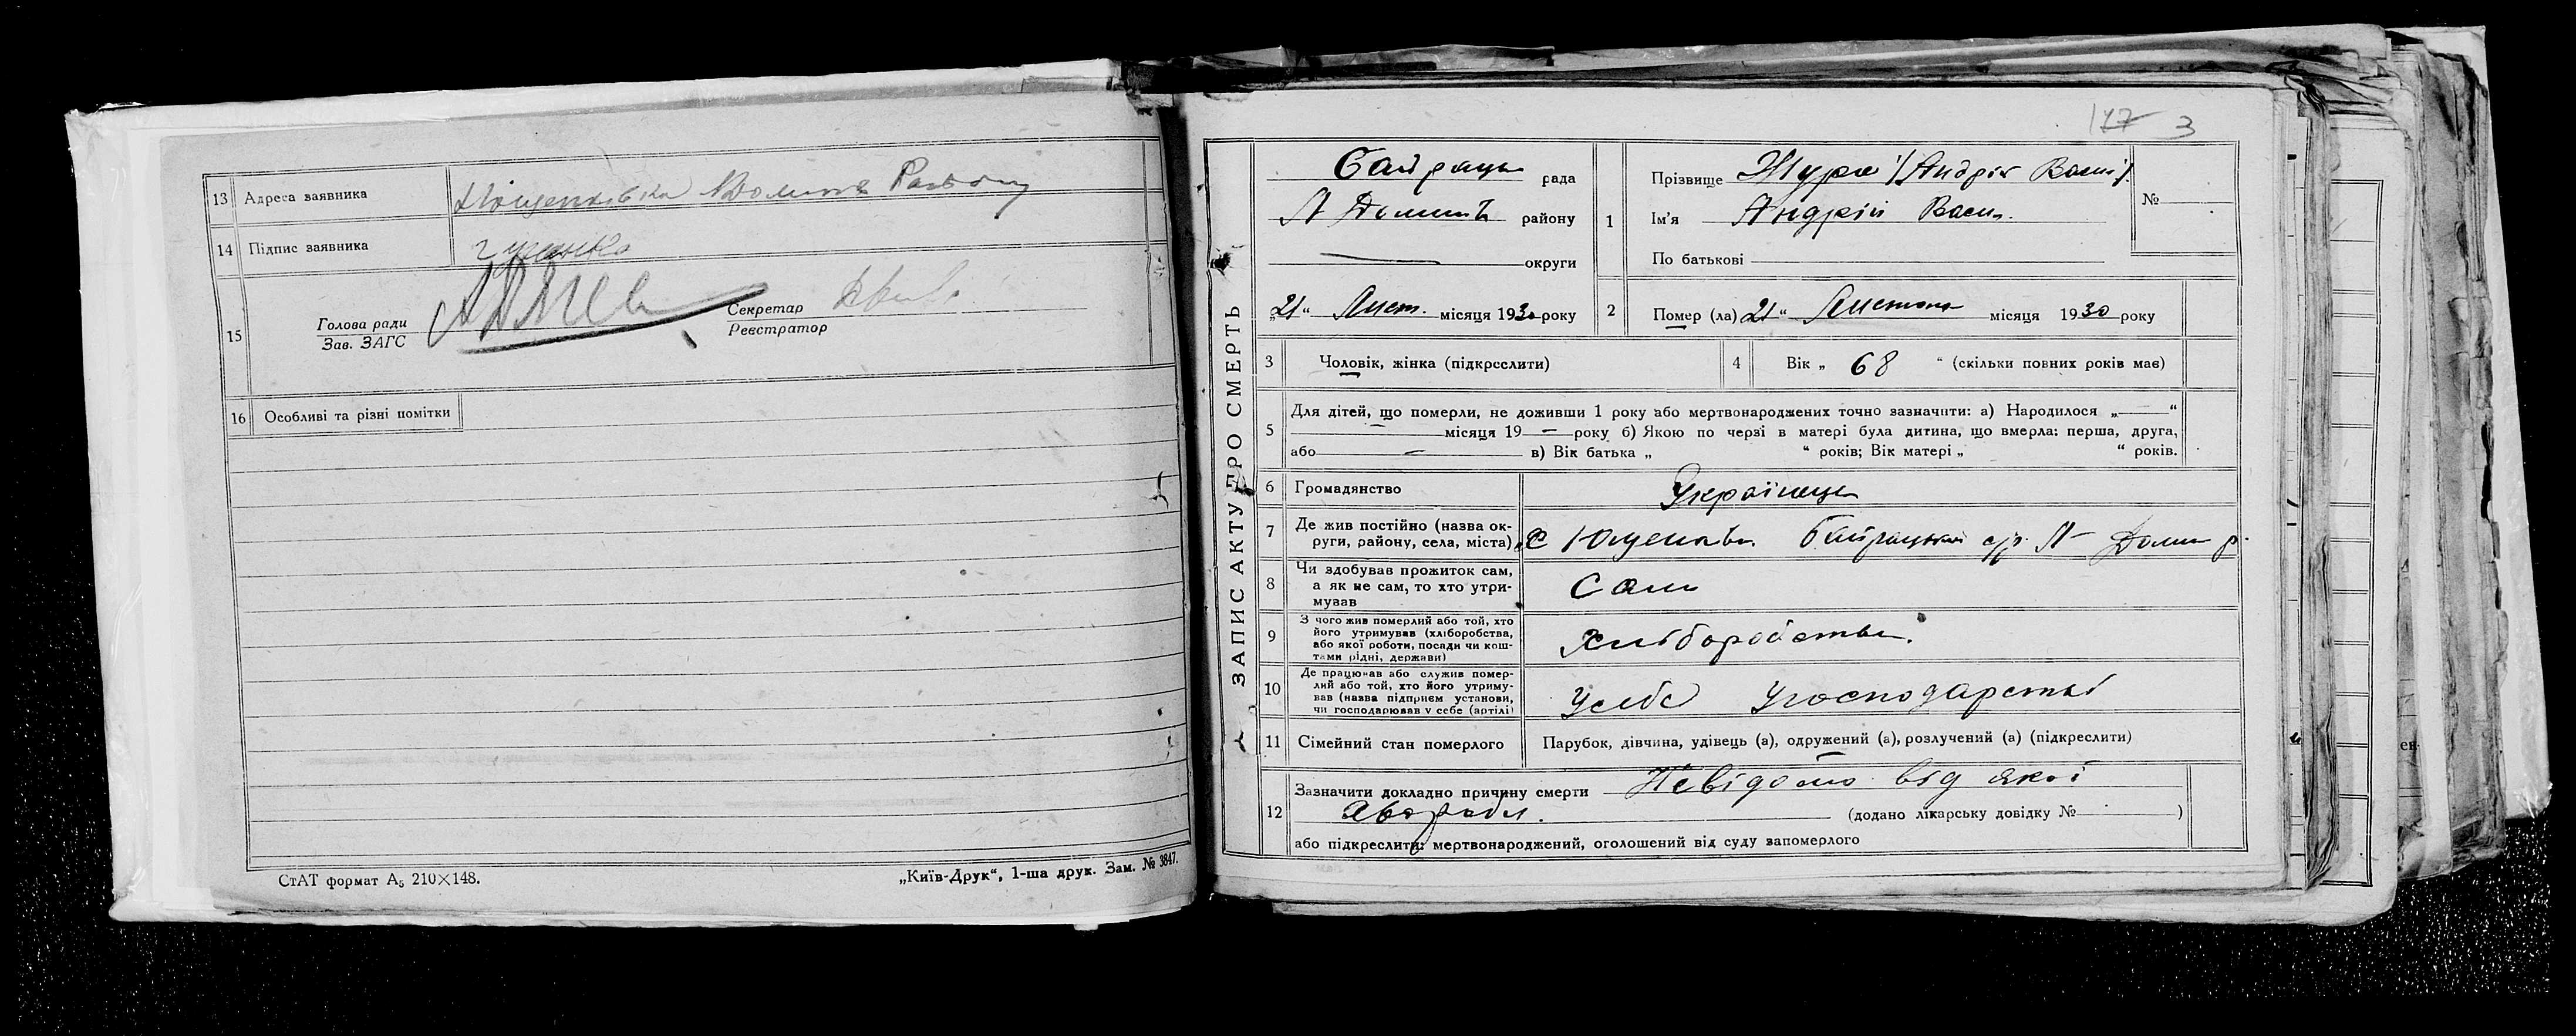 13 Адреса заявника
14 Підпис заявника
15 Голова ради
Зав. ЗАГС
Секретар
Реєстратор
16 Особливі та різні помітки
СтАТ формат А₅ 210×148.
„Київ-Друк“, 1-ша друк. Зам. № 3847.
177 3
ЗАПИС АКТУ ПРО СМЕРТЬ
рада
району
округи
„21“ Лист. місяця 1930 року
1 Прізвище Жура /Андрій Васил/.
Ім'я Андрій Васи.
По батькові
№
2 Помер (ла) 21“ місяця 1930 року
3 Чоловік, жінка (підкреслити)
4 Вік „ 68 “ (скільки повних років має)
5 Для дітей, що померли, не доживши 1 року або мертвонароджених точно зазначити: а) Народилося „ — “
місяця 19 — року б) Якою по черзі в матері була дитина, що вмерла: перша, друга,
або — в) Вік батька „ “ років; Вік матері „ “ років.
6 Громадянство Українець
7 Де жив постійно (назва ок-
руги, району, села, міста) с
8 Чи здобував прожиток сам,
а як не сам, то хто утри-
мував
Сам
9 З чого жив померлий або той, хто
його утримував (хліборобства,
або якої роботи, посади чи кош-
тами рідні, держави)
Хліборобства.
10 Де працював або служив помер-
лий або той, хто його утриму-
вав (назва підприєм установи,
чи господарював у себе (артілі)
Усебе Угосподарстві
11 Сімейний стан померлого Парубок, дівчина, удівець (а), одружений (а), розлучений (а) (підкреслити)
12 Зазначити докладно причину смерти Невідомо від якої
(додано лікарську довідку № )
або підкреслити: мертвонароджений, оголошений від суду запомерлого